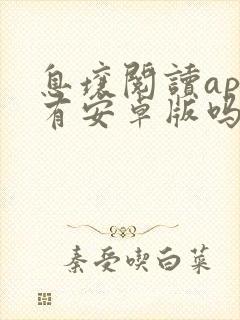 息壤閱讀ap
有安卓版吗
秦受喫白菜